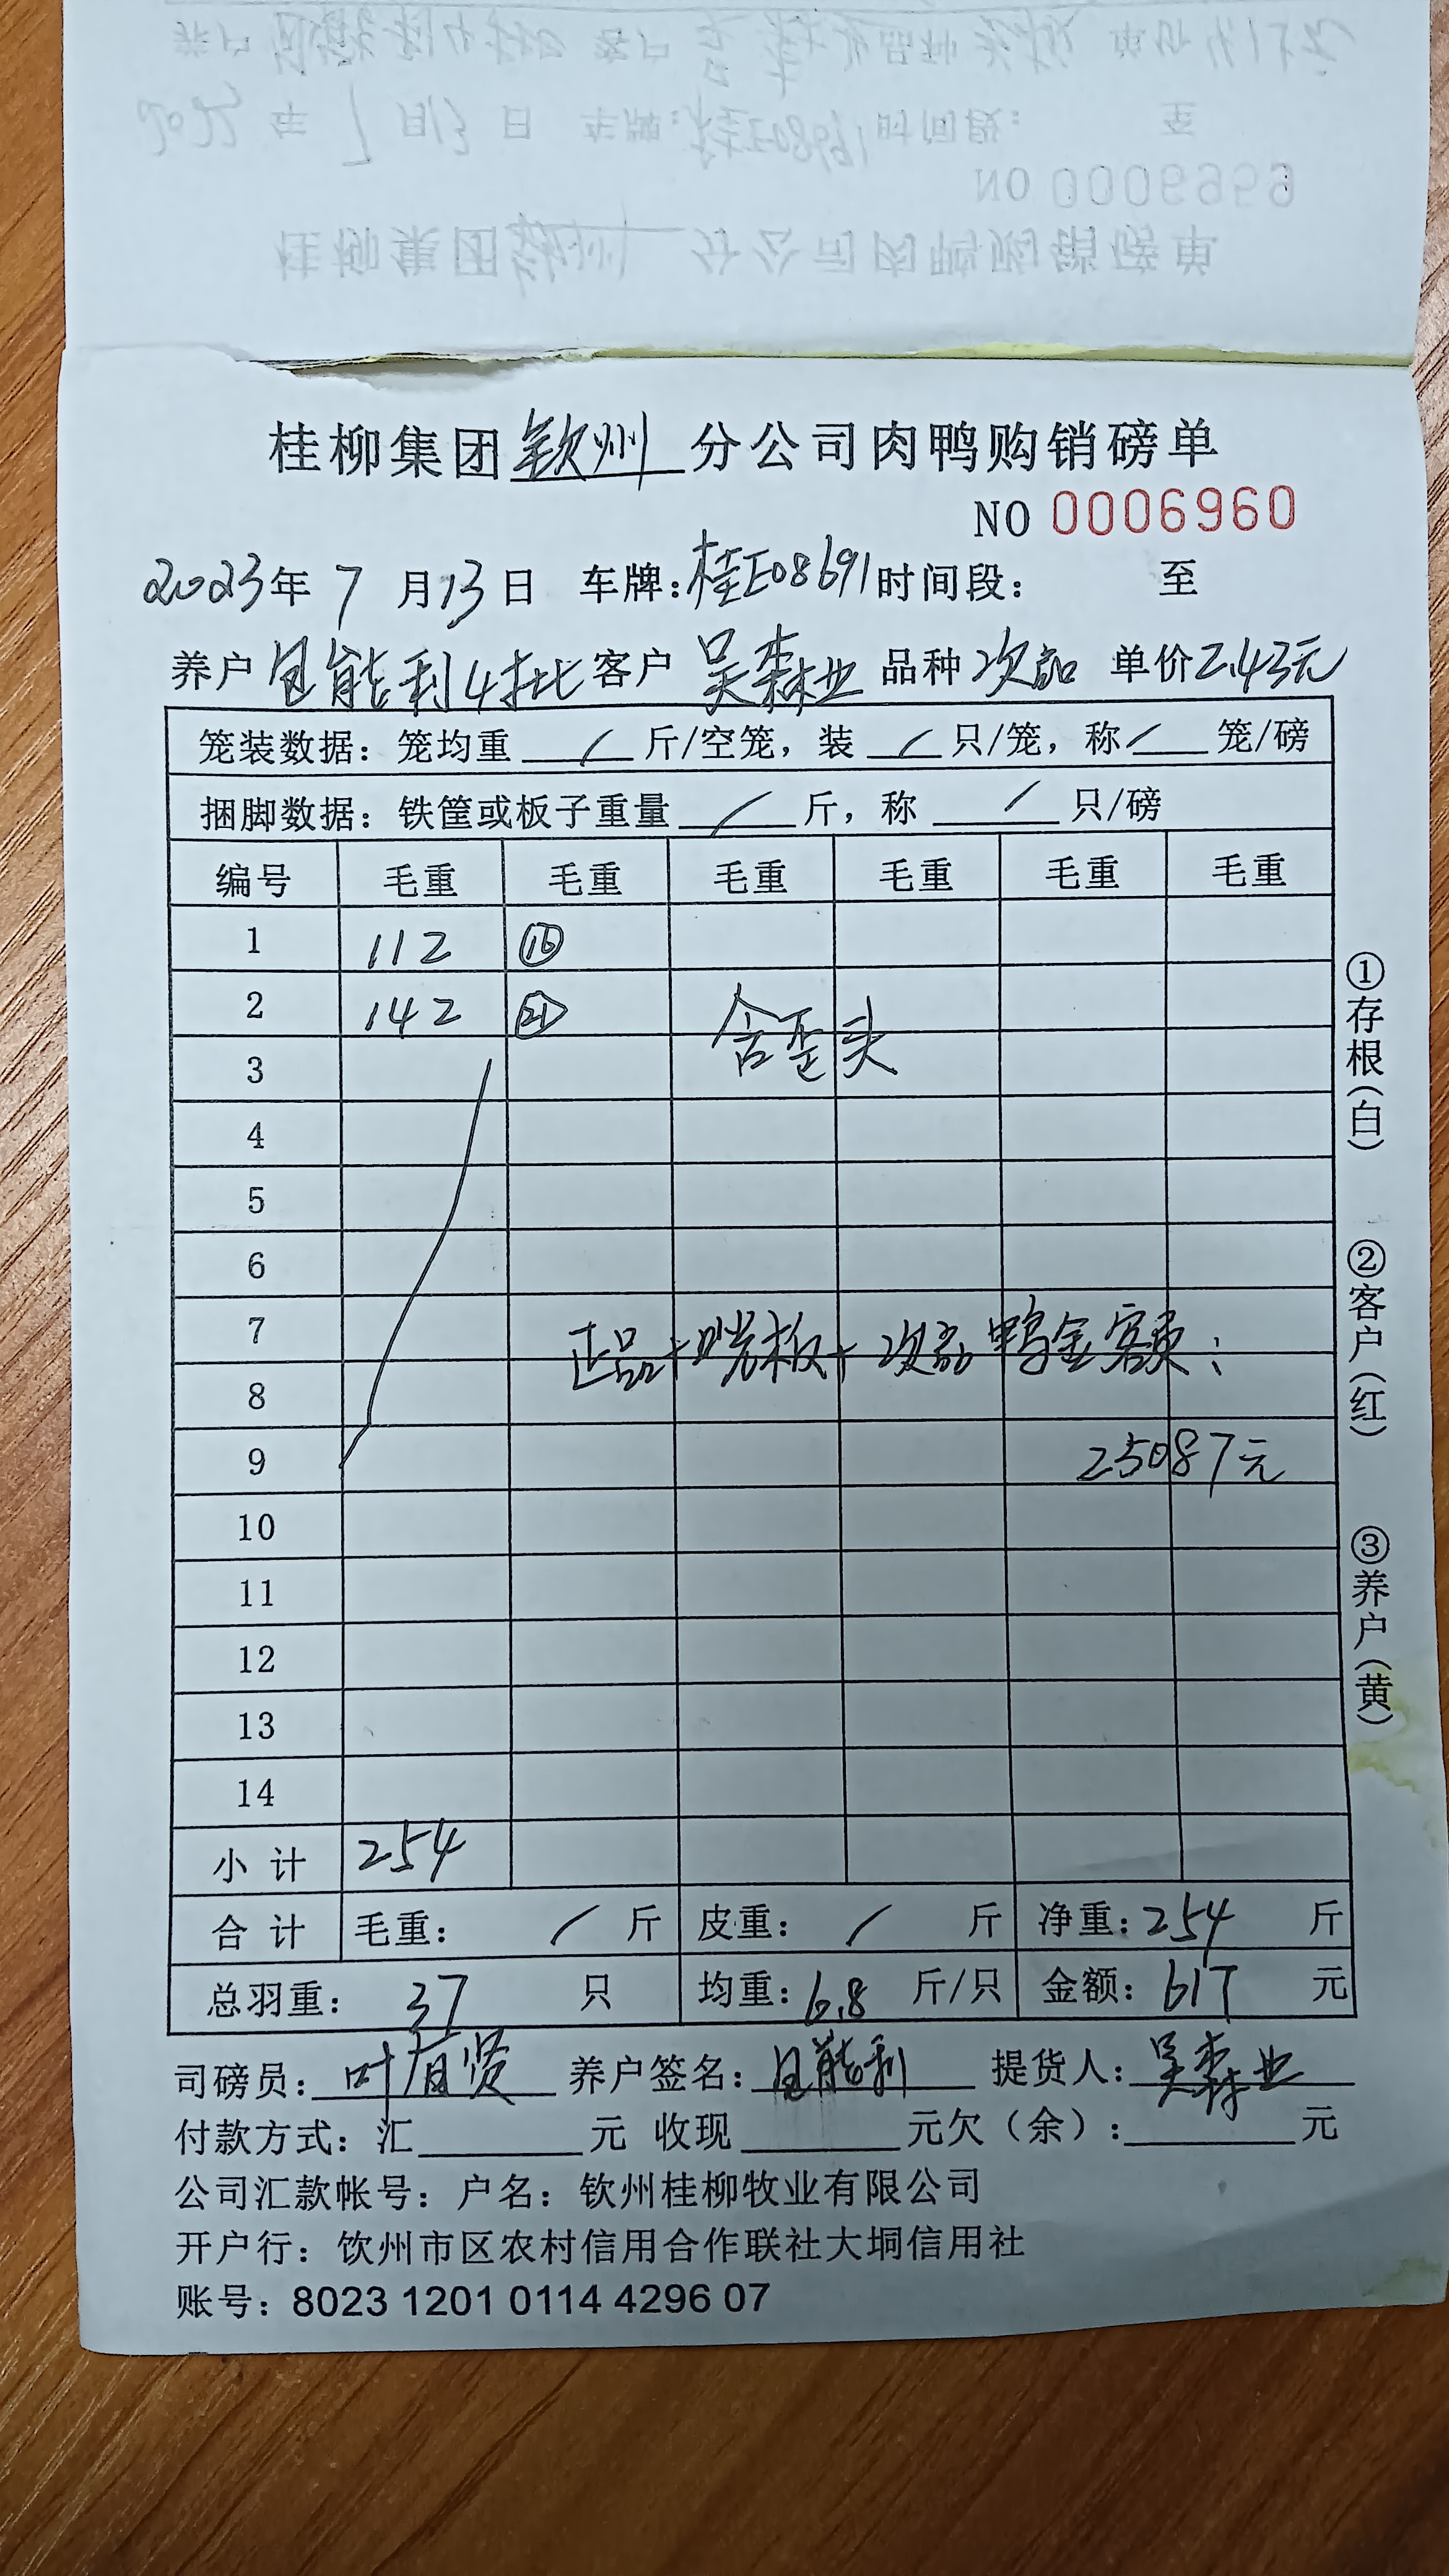 桂柳集团钦州分公司肉鸭购销磅单
NO 0006960
2023年7月13日 车牌:桂E08691时间段: 至
养户 能利4批 客户 吴森业 品种 次品 单价2.43元
笼装数据: 笼均重 / 斤/空笼, 装 / 只/笼, 称 / 笼/磅
捆脚数据: 铁筐或板子重量 / 斤, 称 / 只/磅
编号 毛重 毛重 毛重 毛重 毛重 毛重
1 112 ⑯
2 142 ㉑
含歪头
3
4
5
6
7
正品+ 板+次品鸭金额:
8
9 25087元
10
11
12
13
14
小计 254
合计 毛重: / 斤 皮重: / 斤 净重: 254 斤
总羽重: 37 只 均重: 6.8 斤/只 金额: 617 元
司磅员: 叶有贤 养户签名: 能利 提货人: 吴森业
付款方式: 汇 元 收现 元欠(余): 元
公司汇款帐号: 户名: 钦州桂柳牧业有限公司
开户行: 钦州市区农村信用合作联社大垌信用社
账号: 8023 1201 0114 4296 07
①存根(白) ②客户(红) ③养户(黄)